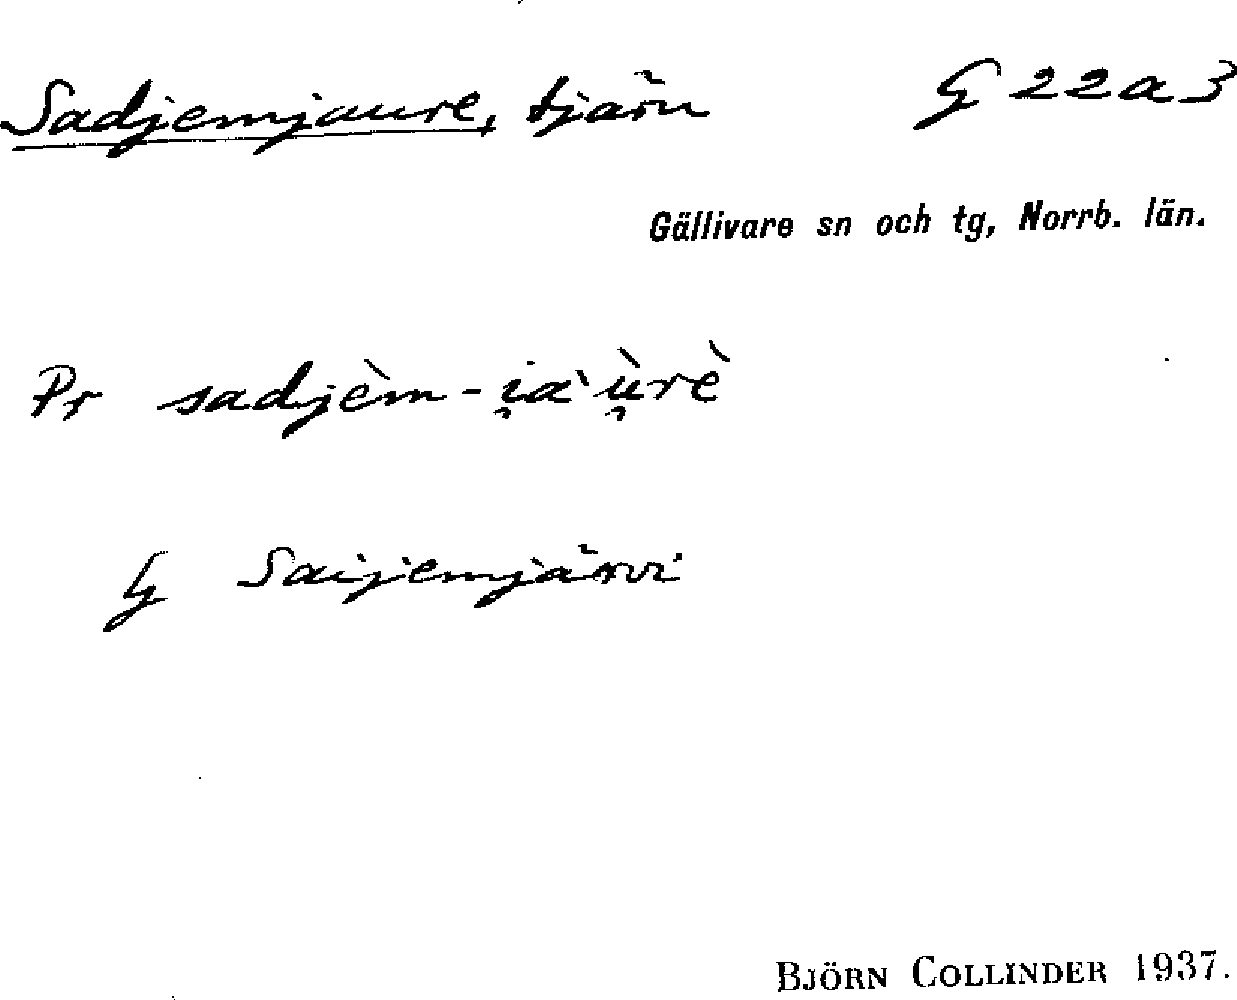 Sadjemjaure, tjärn G 22a3
Gällivare sn och tg, Norrb. län.
Pr sadjèm-i̯a`ù̯rè
G Saijemjärvi
BJÖRN COLLINDER 1937.